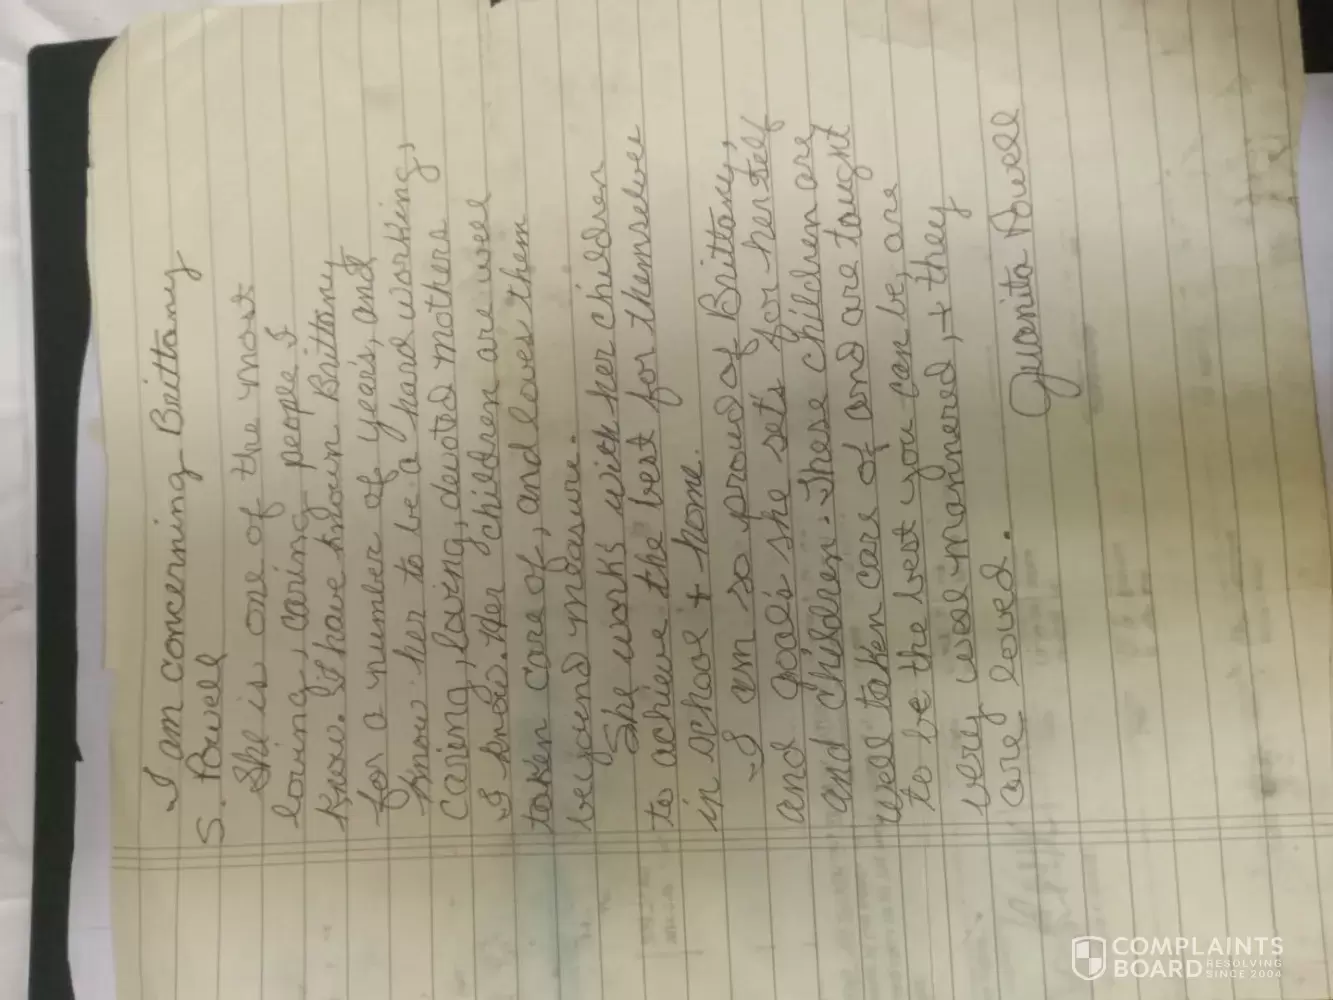 I am concerning Brittany
S. Powell
She is one of the most
loving, caring people I
know. I have known Brittany
for a number of years, and
know her to be a hard working,
caring, loving, devoted mothers
I know. Her children are well
taken care of, and loves them
beyound measure.
She works with her children
to achieve the best for themselves
in school + home.
I am so proud of Brittany,
and goals she sets for herself
and children. These children are
well taken care of and are taught
to be the best you can be, are
very well mannered, + they
are loved.
Juanita Powell
COMPLAINTS
BOARD RESOLVING
SINCE 2004